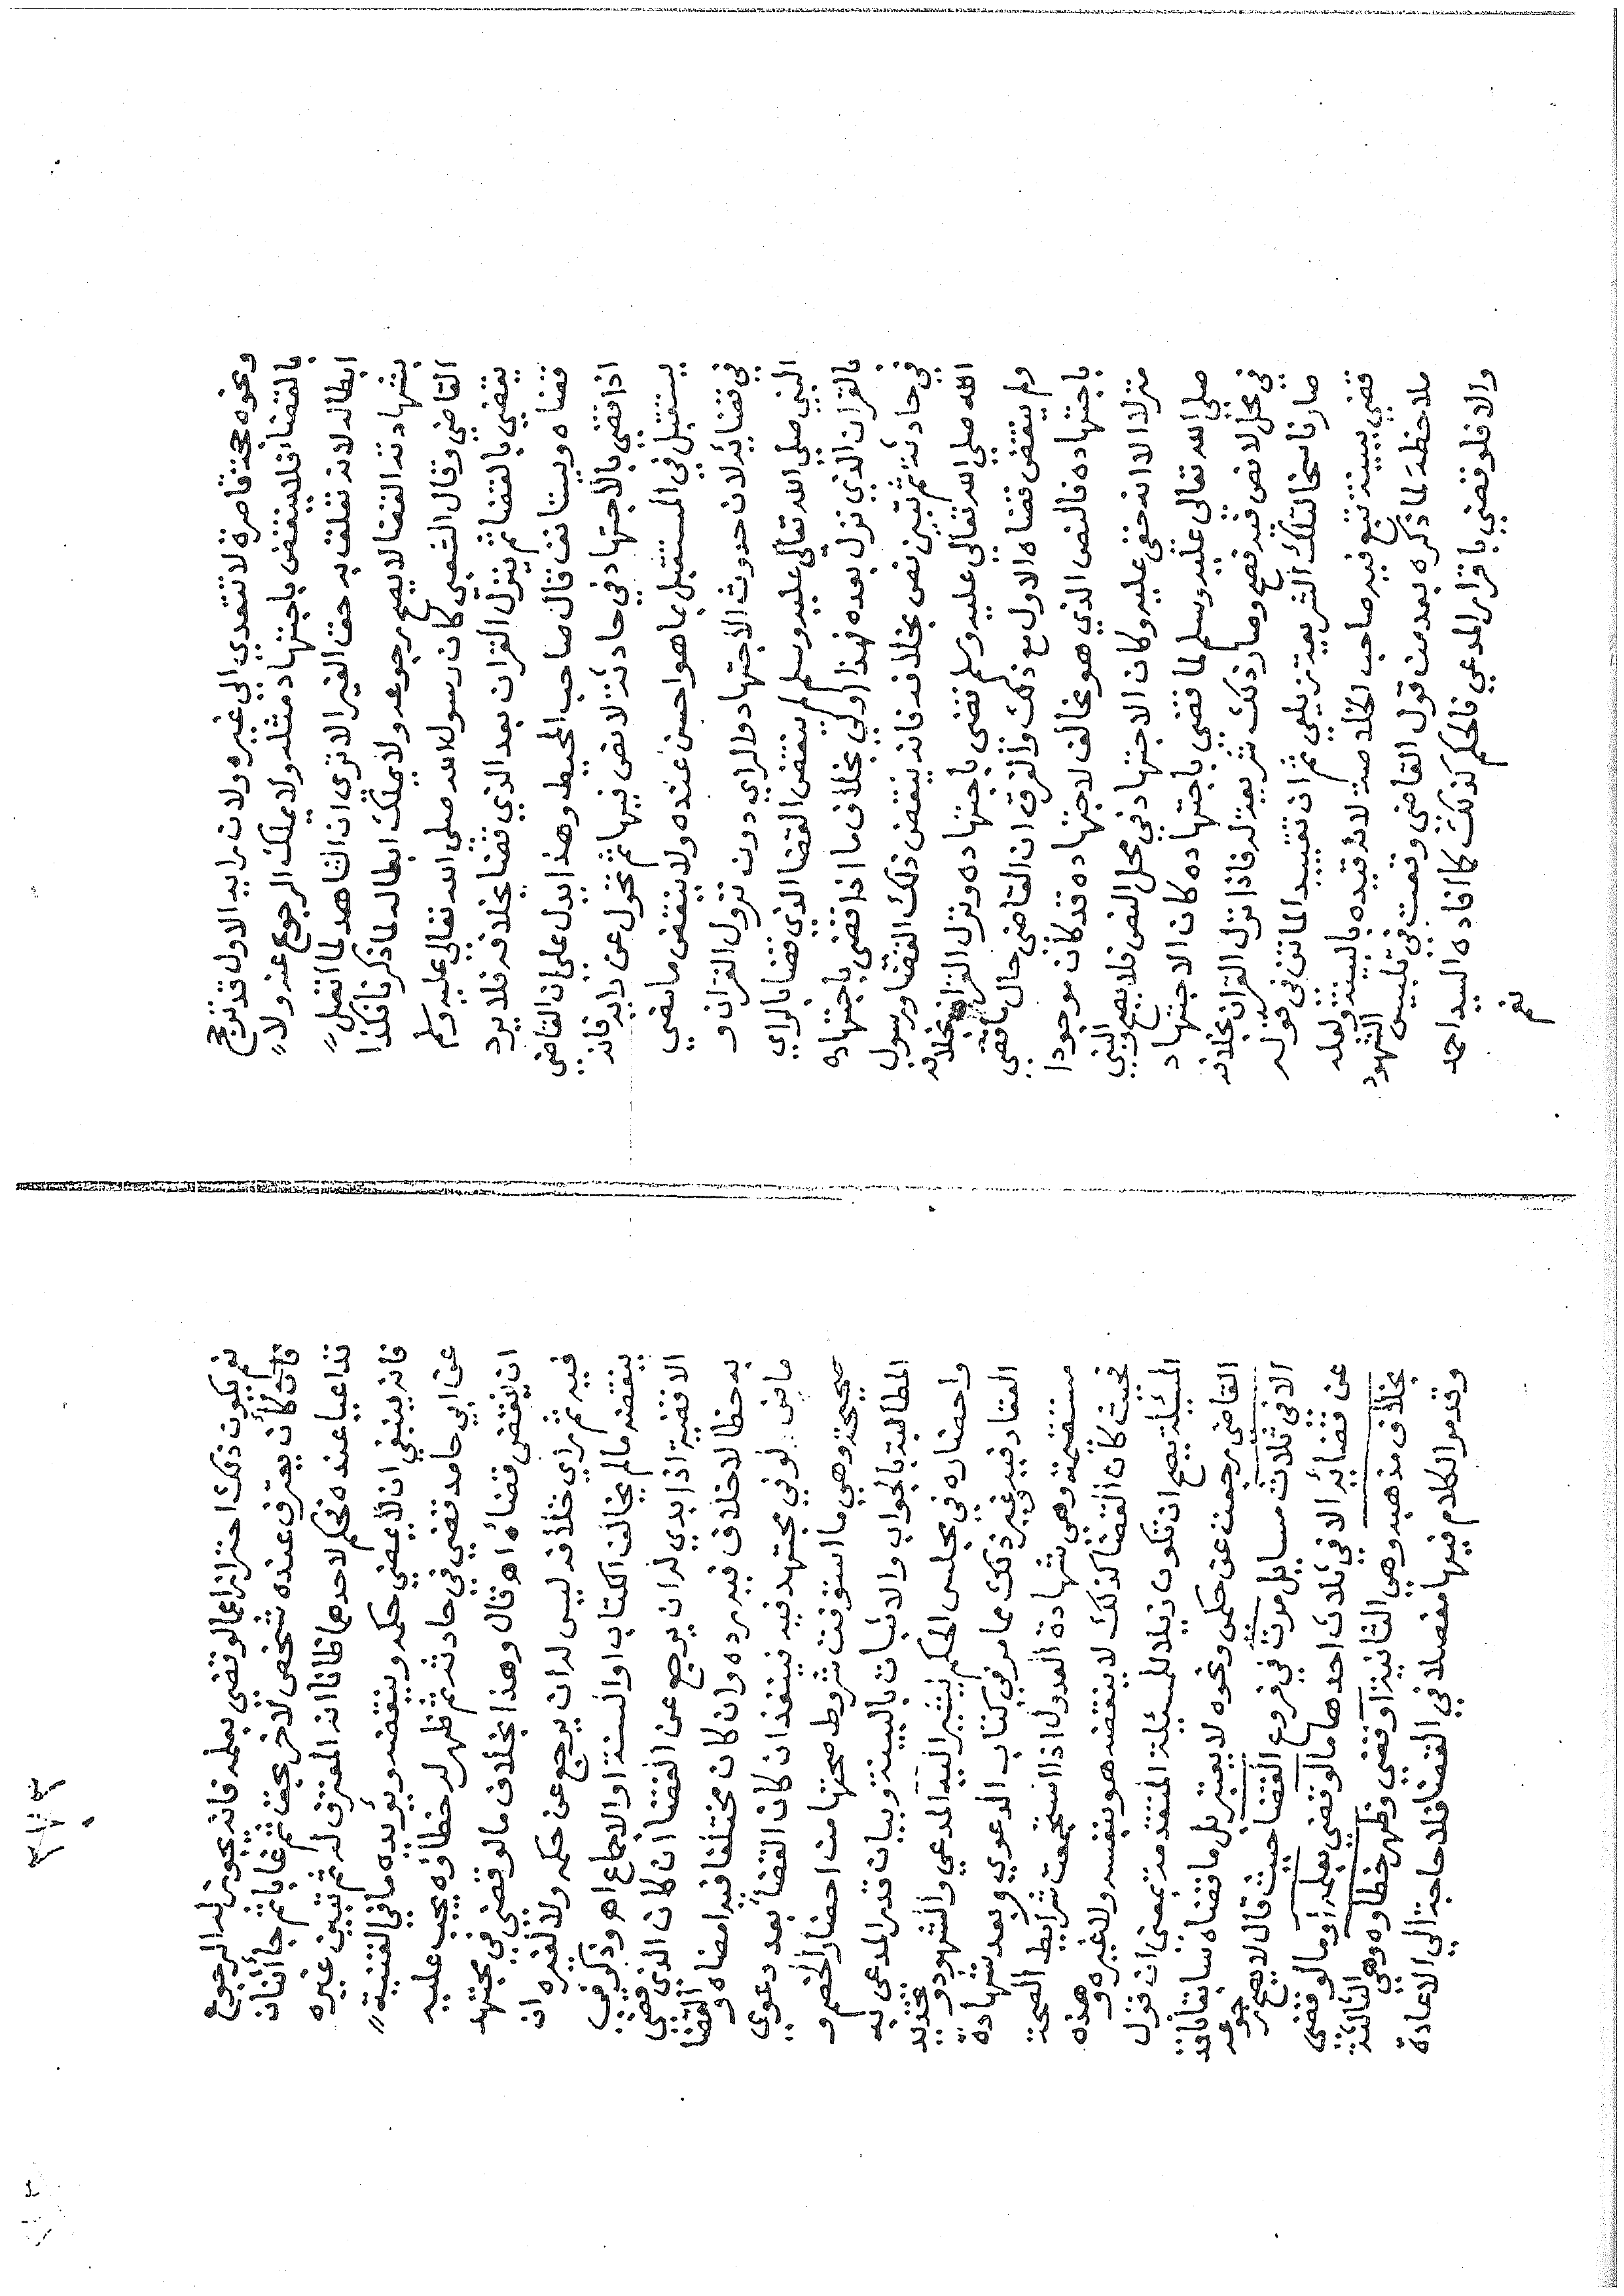 ونحوه حجة قاصرة لا تتعدي الي غيره ولان رايه الاول قد ترجح
بالقضا فلا ينتقض باجتهاد مثله ولا يملك الرجوع عنه ولا
ابطاله لانه تعلق به حق الغير الا تري ان الشاهد لما اتصل
بشهادته القضا لا يصح رجوعه ولا يملك ابطاله لما ذكرنا فكذا
القاضي وقال الشعبي كان رسول الله صلى الله تعالي عليه وسلم
يقضي بالقضا ثم ينزل القران بعد الذي قضا بخلافه فلا يرد
قضاه ويستانف قال صاحب المحيط وهذا يدل علي ان القاضي
اذا قضي بالاجتهاد في حادثة لا نص فيها ثم تحول عن رايه فانه
يستقبل في المستقبل بما هو احسن عنده ولا ينتقض ما مضي
في قضايه لان حدوث الاجتهاد والراي دون نزول القران و
النبي صلي الله تعالي عليه وسلم لم ينتقض القضا الذي قضا بالراي
بالقران الذي نزل بعده فهذا اولي بخلاف ما اذا قضي باجتهاده
في حادثة ثم تبين نص بخلافه فانه ينتقض ذلك القضا ورسول
الله صلي الله تعالي عليه وسلم قضي باجتهاده ونزل القران بخلافه
ولم ينتقض قضاه الاول مع ذلك والفرق ان القاضي حال ما قضي
باجتهاده فالنص الذي هو مخالف لاجتهاده قد كان موجودا
منزلا الا انه خفي عليه وكان الاجتهاد في محل النص فلا يصح والنبي
صلي الله تعالي عليه وسلم لما قضي باجتهاده كان الاجتهاد
في محل لا نص فيه فصح وصار ذلك شريعة له فاذا نزل القران بخلافه
صار ناسخا لتلك الشريعة زيلعي ثم ان تقييد الماتن في قوله
قضي ببينة تبع فيه صاحب الخلاصة لانه قيده بالبينة ولعله
ملاحظة لما ذكره بعد من قول القاضي وقعت في تلبيس الشهود
والا فلو قضي باقرار المدعي فالحكم كذلك كما افاده السيد احمد
نعم
نعم يكون ذلك احترازا عما لو قضي بعلمه فانه يجوز له الرجوع
كأن كان يعترف عنده شخص لاخر بحق ثم غابا ثم جا اثنان
تداعيا عنده فحكم لاحدهما ظانا انه المعترف له ثم تبين غيره
فانه ينبغي ان لا يمضي حكمه وينقضه ويؤيده ما في القنية
عن ابي حامد قضي في حادثة ثم ظهر له خطاؤه يجب عليه
ان ينقض قضاءه اهـ قال وهذا بخلاف ما لو قضي في مجتهد
فيه ثم راي خلافه ليس له ان يرجع عن حكمه ولا لغيره ان
ينقضه ما لم يخالف الكتاب او السنة او الاجماع اهـ وذكر في
الاقضية اذا بدي له ان يرجع عن القضا ان كان الذي قضي
به خطا لا خلاف فيه رده وان كان مختلفا فيه امضاه و القضا
ماض لو في مجتهد فيه فينفذ ان كان القضاء بعد دعوي
صحيحة وهي ما استوفت شروط صحتها من احضار الخصم و
المطالبة بالجواب والاثبات بالبينة وبيان قدر المدعي به
واحضاره في مجلس الحكم ليشير اليه المدعي والشهود و تحديد
العقار فيه وغير ذلك مما مر في كتاب الدعوي وبعد شهادة
مستقيمة وهي شهادة العدول اذا استجمعت شرايط الصحة
فحيث كان القضا كذلك لا ينقضه هو بنفسه ولا غيره و هذه
المسئلة يصح ان تكون ذيلا للمسئلة المتقدمة بمعني ان قول
القاضي رجعت عن حكمي ونحوه لا يعتبر بل ما قضاه سابقا نافذ
الا في ثلاث مسايل مرت في فروع القضا حيث قال لا يصح رجوعه
عن قضائه الا في ثلاث احدها ما لو قضي بعلمه او ما لو قضي
بخلاف مذهبه وهي الثانية او قضي وظهر خطاوه وهي الثالثة
وقدمو الكلام فيها مفصلا في القضا فلا حاجة الي الاعادة